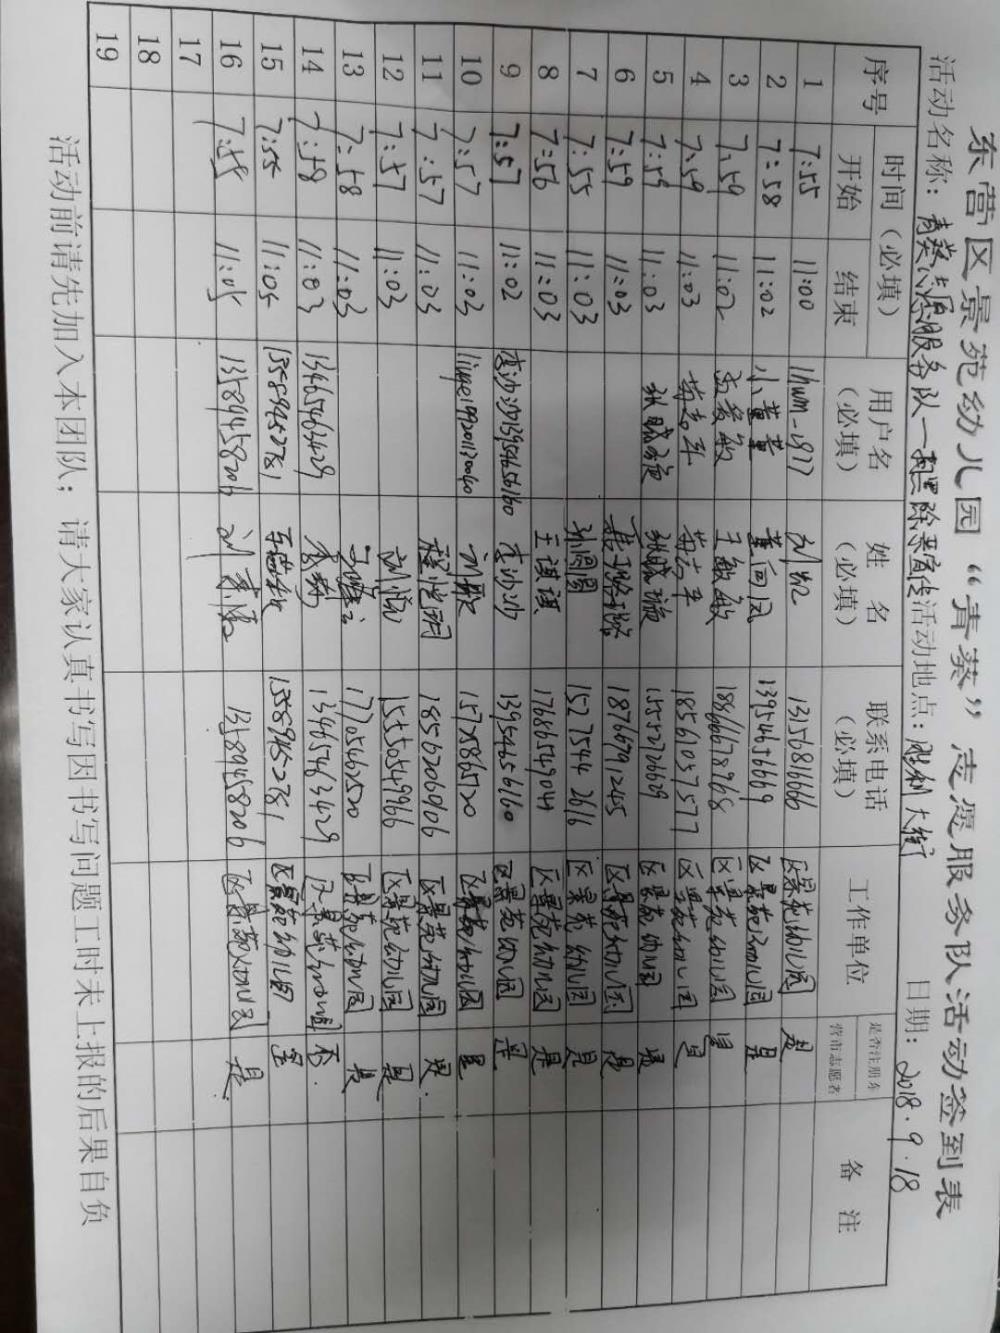 东营区景苑幼儿园“青葵”志愿服务队活动签到表
活动名称：青葵志愿服务队—扫黑除恶宣传 活动地点：胜利大街 日期：2018.9.18
序号 时间（必填） 用户名（必填） 姓名（必填） 联系电话（必填） 工作单位 是否注册东营市志愿者 备注
开始 结束
1 7:55 11:00 lhwm-1977 区景苑幼儿园 是
2 7:58 11:02 小董董 董向凤 13954656669 区景苑幼儿园 是
3 7:59 11:02 王敏敏 18666678968 区景苑幼儿园 是
4 7:59 11:03 18561037577 区景苑幼儿园 是
5 7:59 11:03 15552726629 区景苑幼儿园 是
6 7:59 11:03 18767991245 区景苑幼儿园 是
7 7:55 11:03 孙圆圆 15275442616 区景苑幼儿园 是
8 7:56 11:03 王琪琪 17686549044 区景苑幼儿园 是
9 7:57 11:02 李沙沙13954656160 李沙沙 13954656160 区景苑幼儿园 是
10 7:57 11:03 刘歌 15725865120 区景苑幼儿园 是
11 7:57 11:03 程悦玥 1856206906 区景苑幼儿园 是
12 7:57 11:03 刘悦 15550549966 区景苑幼儿园 是
13 7:58 11:03 17705462520 区景苑幼儿园 是
14 7:58 11:03 13465463429 13465463429 区景苑幼儿园 否
15 7:55 11:05 13589452781 13589452781 区景苑幼儿园 是
16 7:55 11:05 13589458206 13589458206 区景苑幼儿园 是
17
18
19
活动前请先加入本团队；请大家认真书写因书写问题工时未上报的后果自负